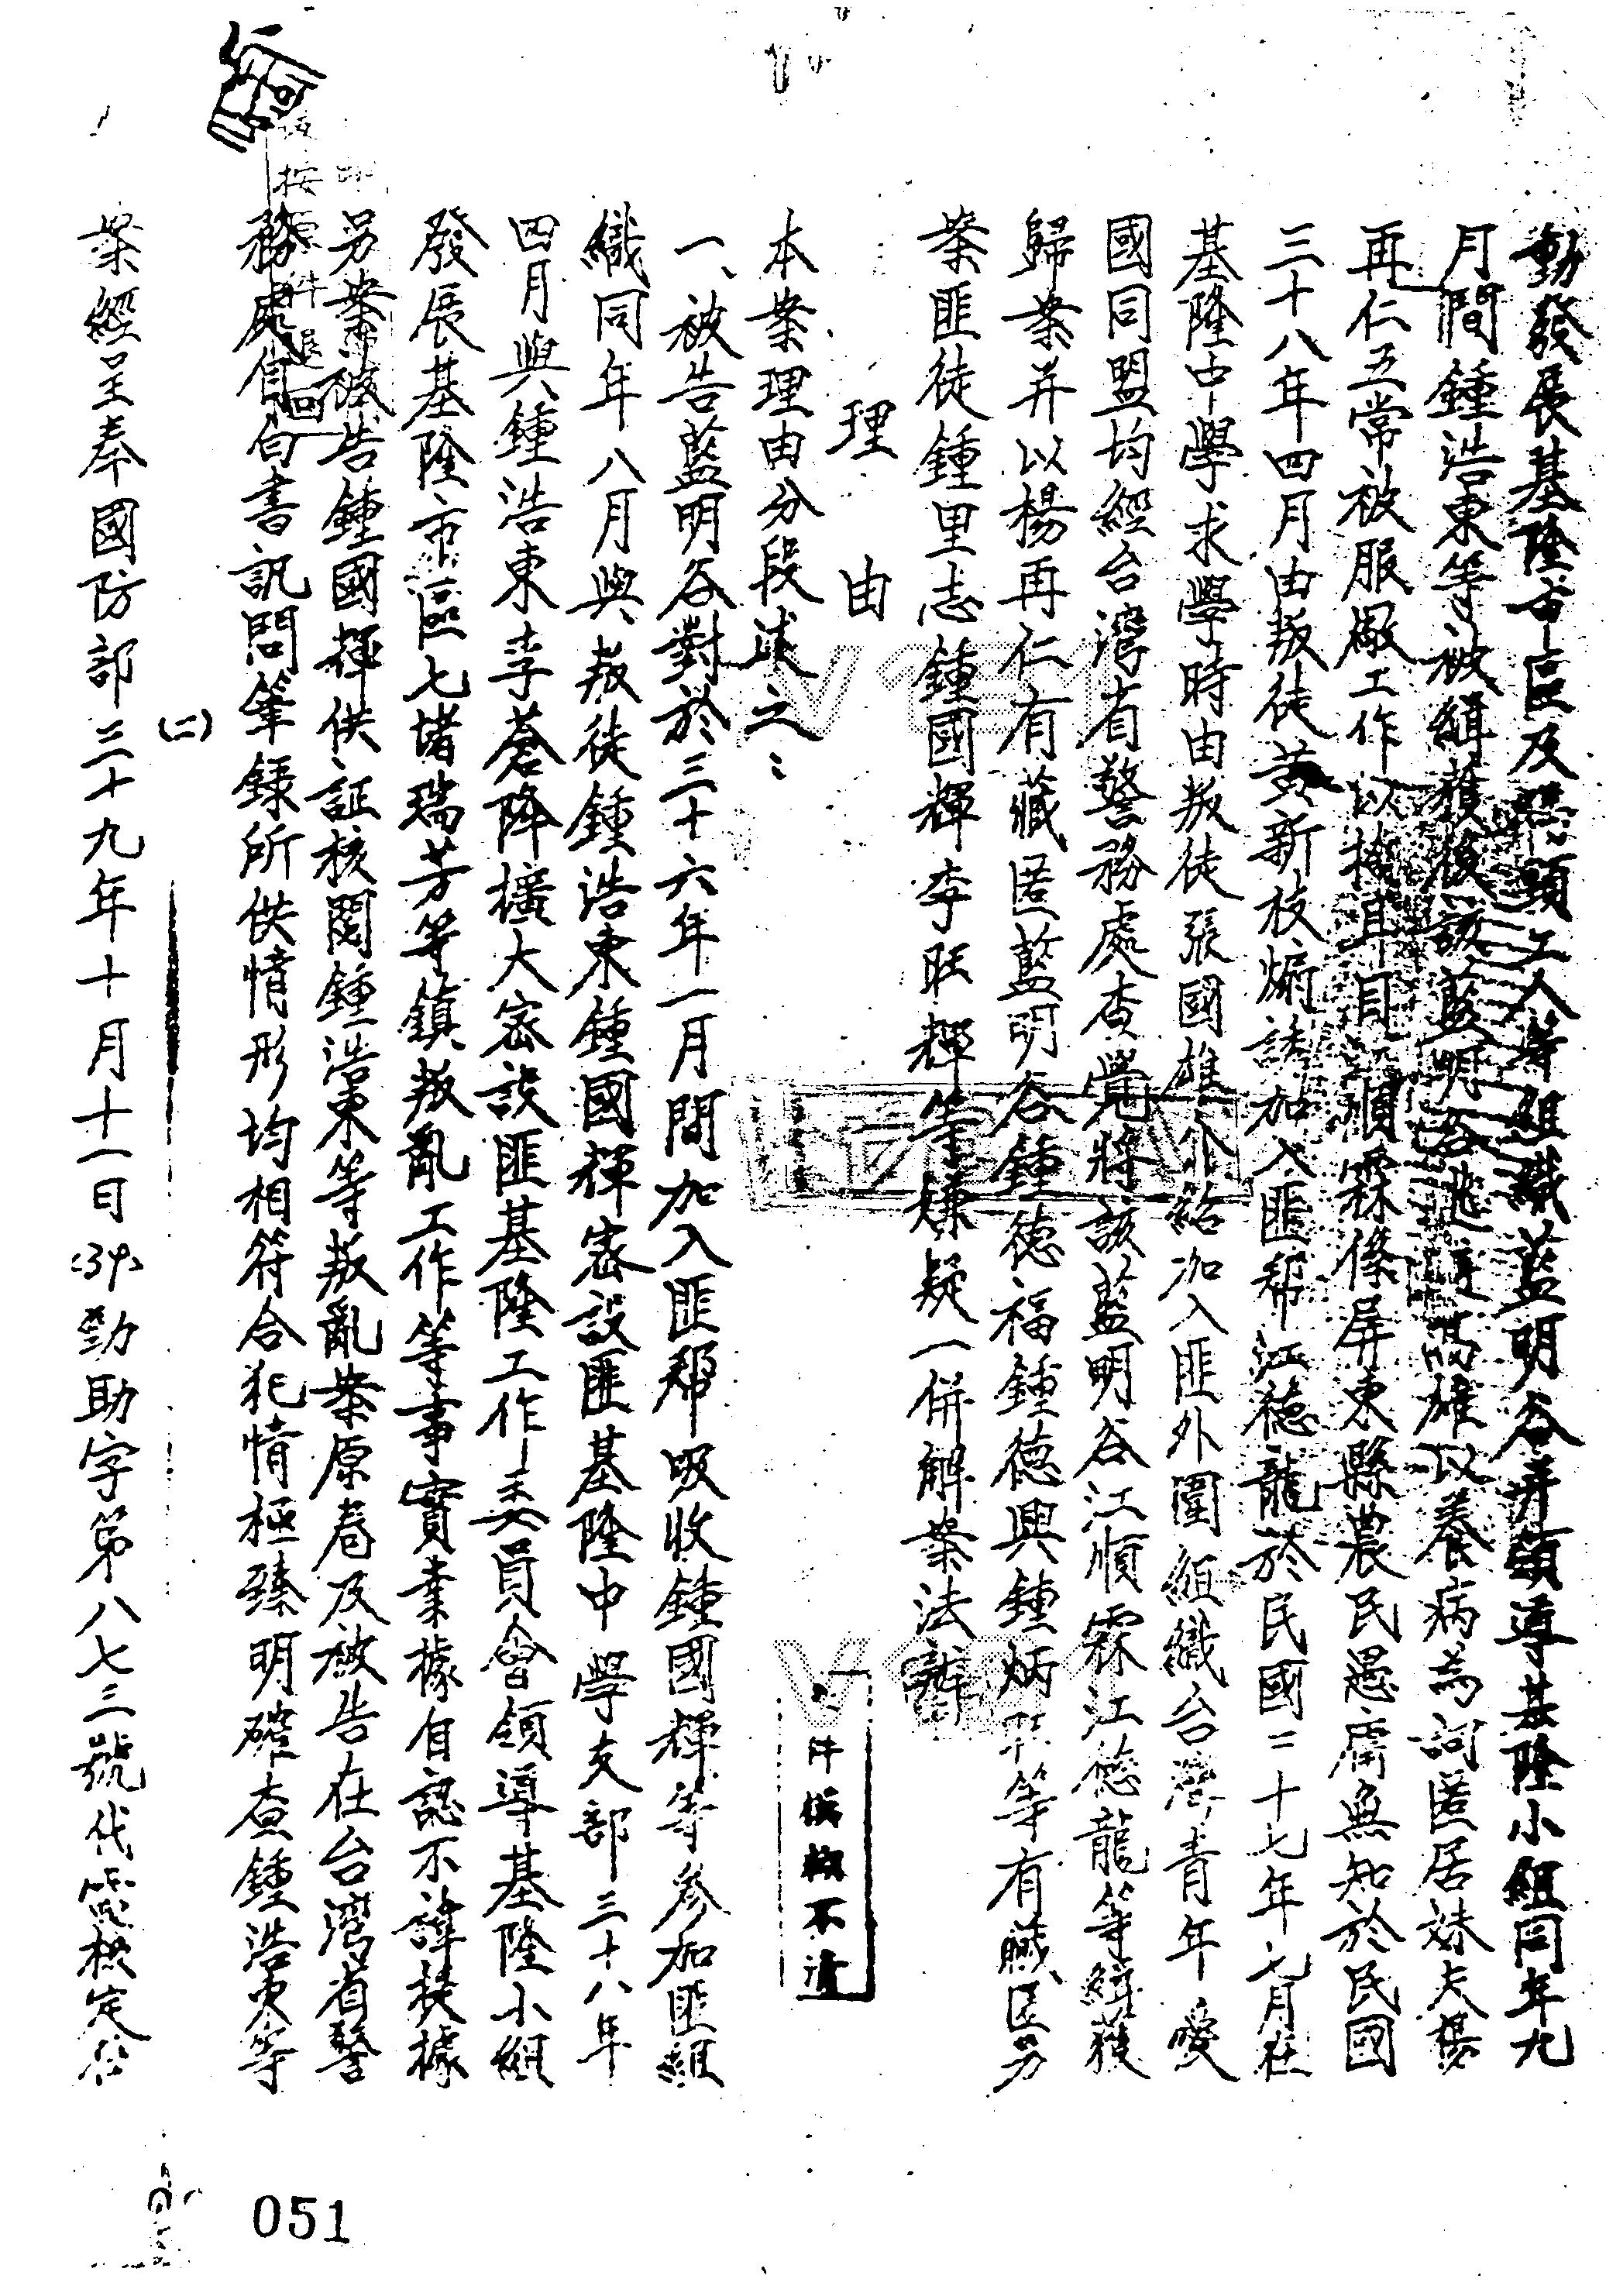 動發展基隆市區及碼頭工人等組織藍明谷并領導基隆小組同年九
月間鍾浩東等被緝獲後該藍明谷逃往高雄以養病為詞匿居妹夫楊
再仁五常被服廠工作以掩耳目江順霖係屏東縣農民愚庸無知於民國
三十八年四月由叛徒黃新枝煽誘加入匪幫江德龍於民國三十七年七月在
基隆中學求學時由叛徒張國雄介紹加入匪外圍組織台灣青年愛
國同盟均經台灣省警務處查覺將該藍明谷江順霖江德龍等緝獲
歸案并以楊再仁有藏匿藍明谷鍾德福鍾德興鍾炳 等有藏匿另
案匪徒鍾里志鍾國輝李旺輝等嫌疑一併解案法辦
理 由
本案理由分段述之：
一、被告藍明谷對於三十六年一月間加入匪幫吸收鍾國輝等參加匪組
織同年八月與叛徒鍾浩東鍾國輝密設匪基隆中學支部三十八年
四月與鍾浩東李蒼降擴大密設匪基隆工作委員會領導基隆小組
發展基隆市區七堵瑞芳等鎮叛亂工作等事實業據自認不諱挨據
另案被告鍾國輝供証核閱鍾浩東等叛亂案原卷及被告在台灣省警
務處自白書訊問筆錄所供情形均相符合犯情極臻明確查鍾浩東等
(二)
案經呈奉國防部三十九年十月十一日(39)勁助字第八七三號代電核定在
件模糊不清
按 件退回
051